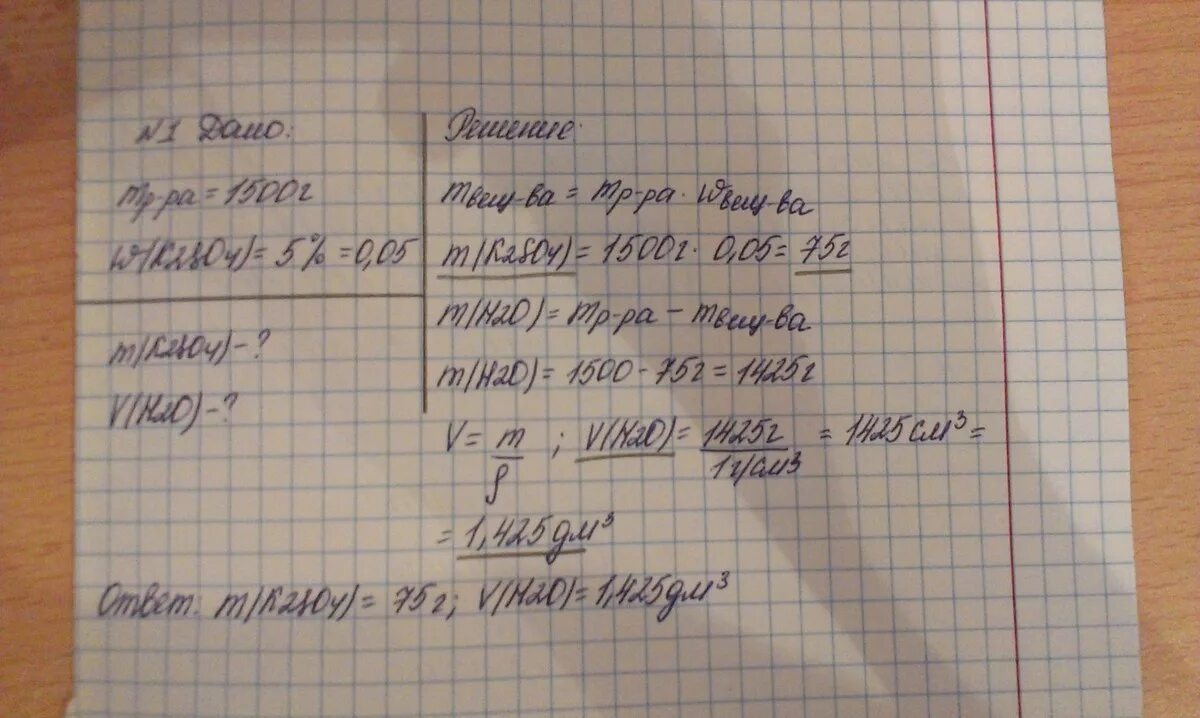 №1 Дано:
mр-ра = 1500г
W(K2SO4) = 5% = 0,05
m(K2SO4) - ?
V(H2O) - ?
Решение:
mвещ-ва = mр-ра · Wвещ-ва
m(K2SO4) = 1500г · 0,05 = 75г
m(H2O) = mр-ра - mвещ-ва
m(H2O) = 1500 - 75г = 1425г
V = m/ρ ; V(H2O) = 1425г/1г/см³ = 1425см³ =
= 1,425дм³
Ответ: m(K2SO4) = 75г; V(H2O) = 1,425дм³